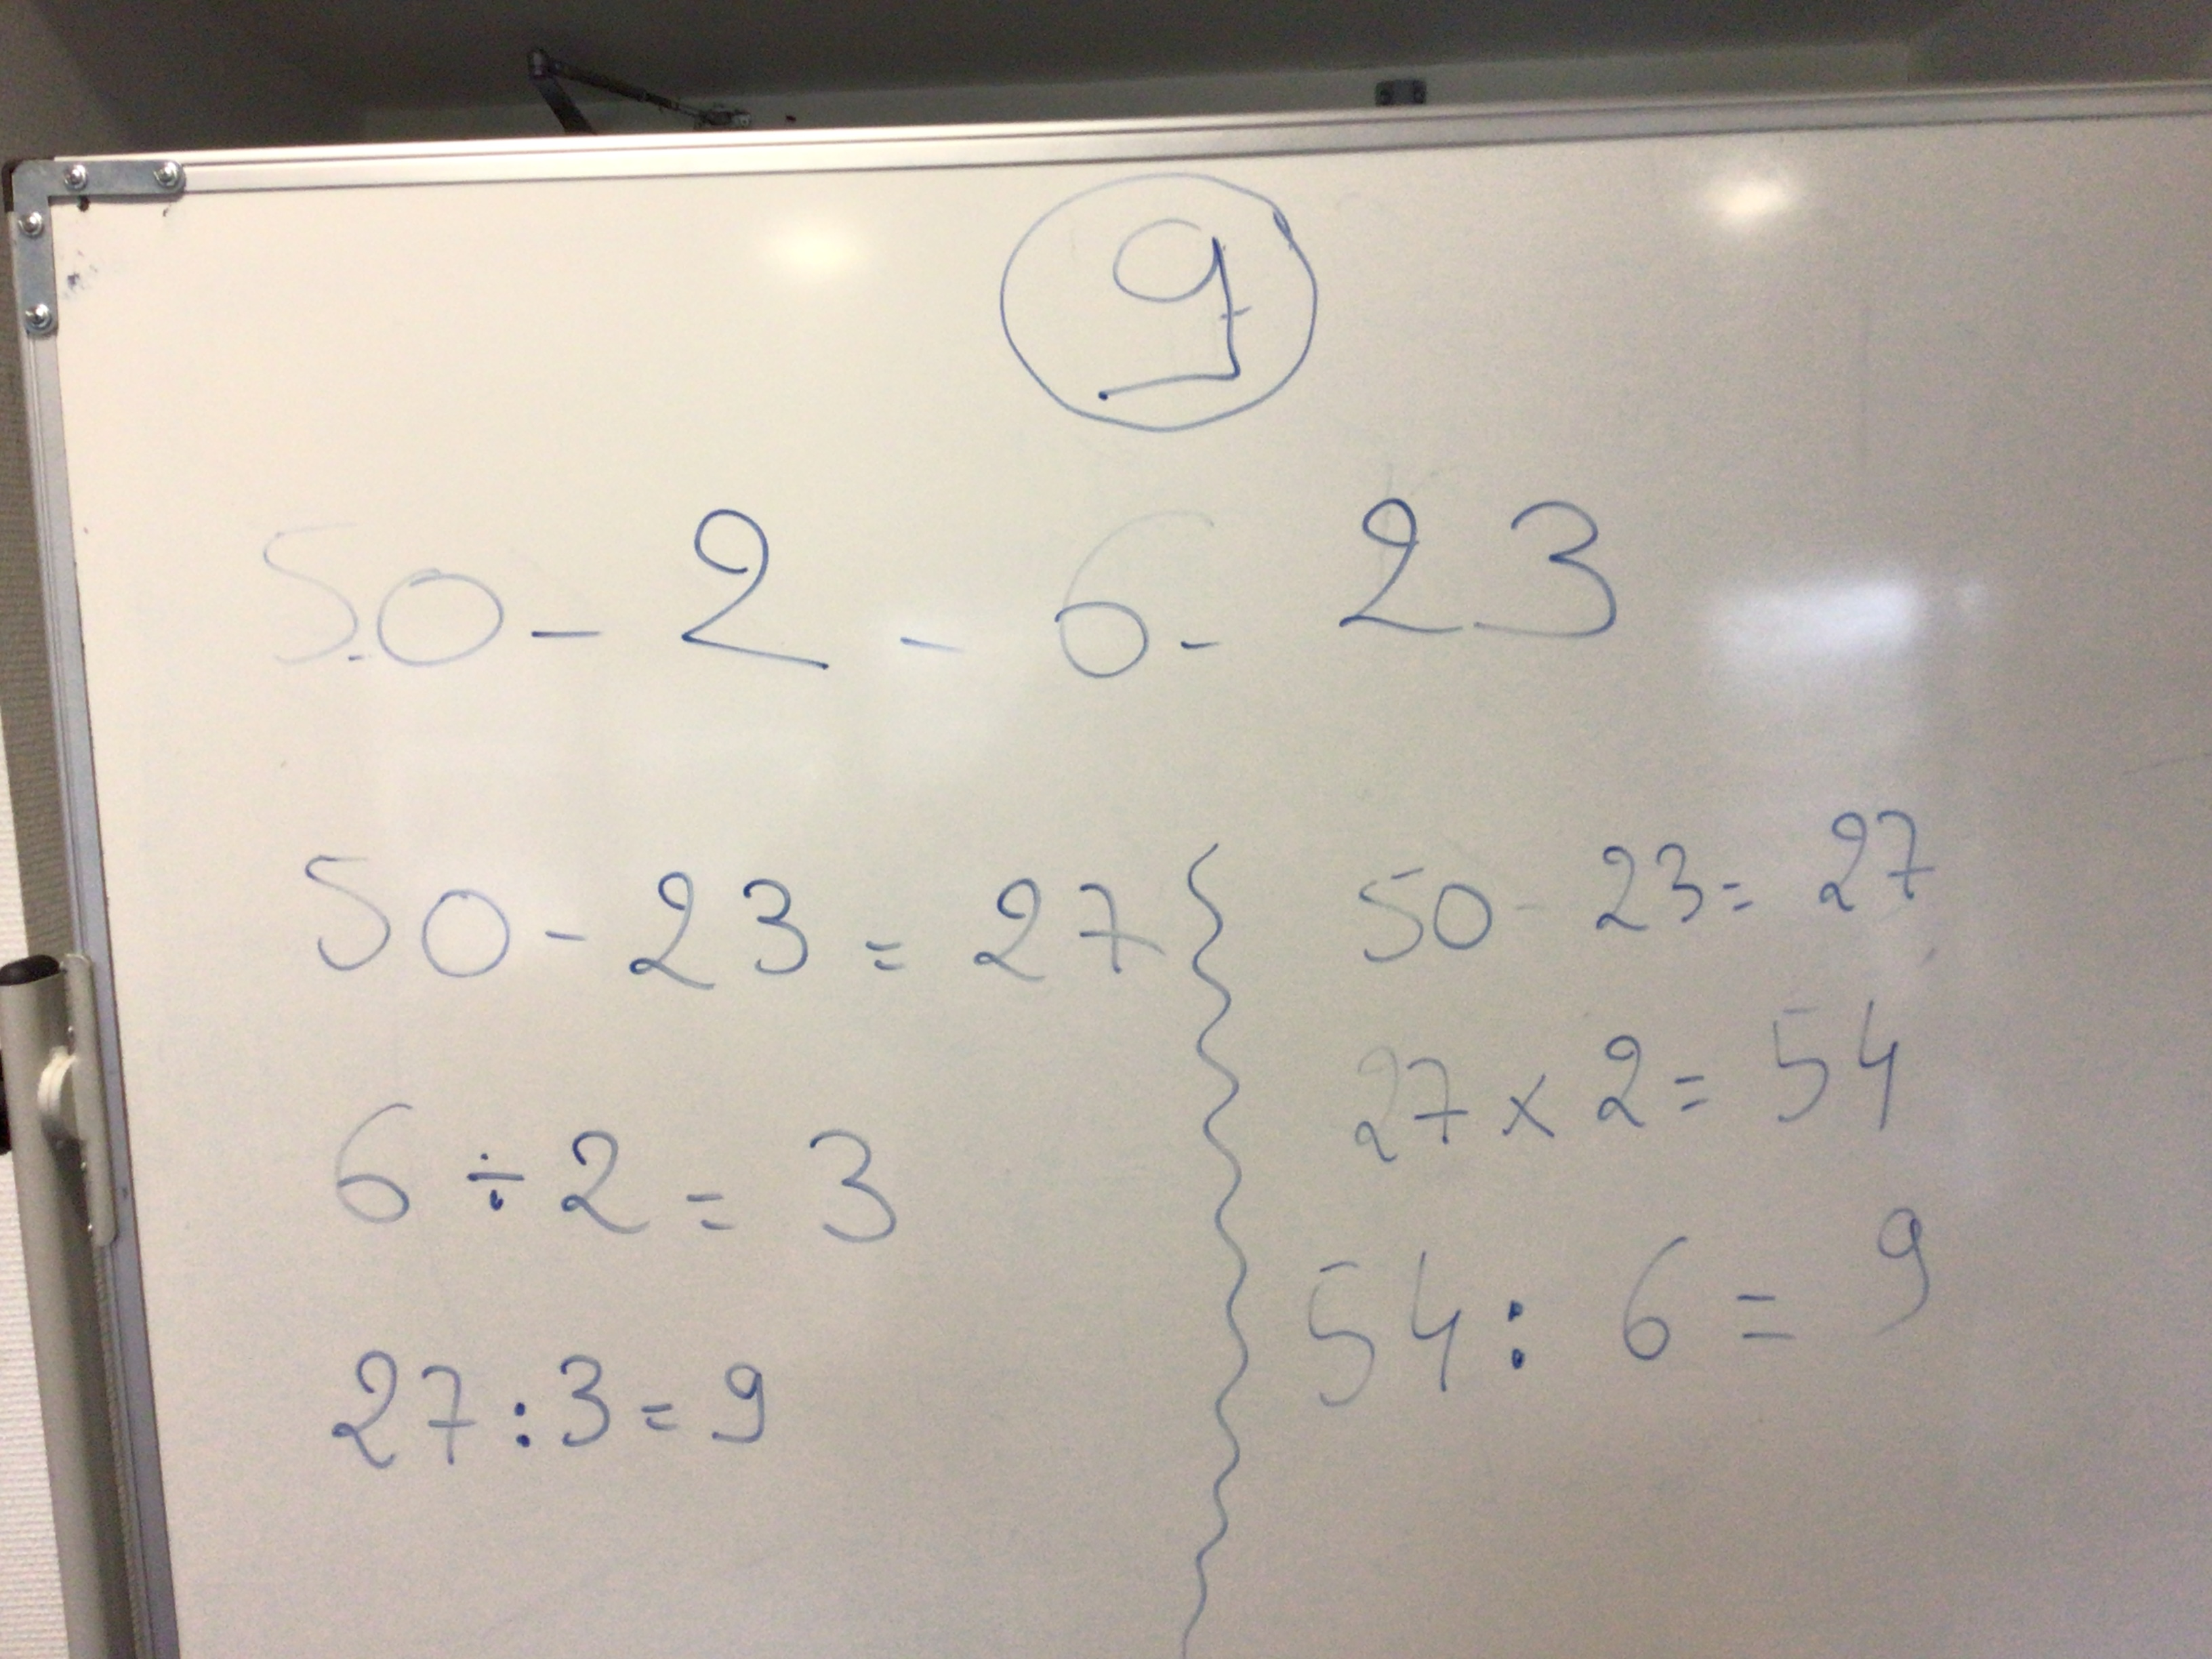 9
50 - 2 - 6 - 23
50 - 23 = 27
6 ÷ 2 = 3
27 : 3 = 9
50 - 23 = 27
27 x 2 = 54
54 : 6 = 9